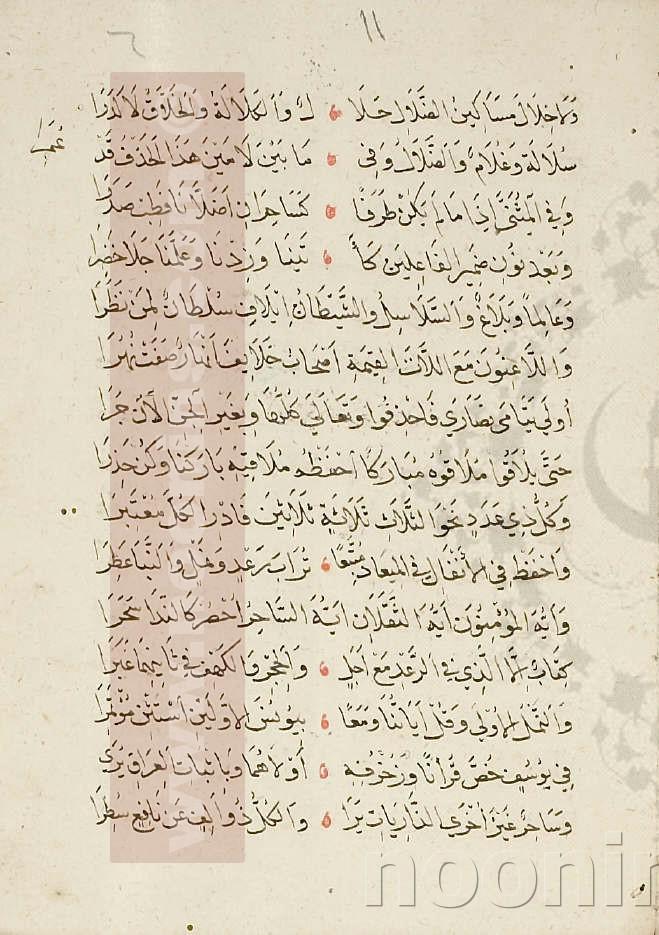 ١١
وَلَا خِلَالَ مَسَاكِينُ الضَّلَالُ حَلَا ● لٌ وَالْكَلَالَةُ وَالْخَلَّاقُ لَا كَدَرَا
سُلَالَةٌ وَغُلَامٌ وَالضَّلَالُ وَفِي ● مَا بَيْنَ لَامَيْنِ هَذَا الْحَذْفُ قَدْ عُمِرَا
وَفِي الْمُثَنَّى إِذَا مَا لَمْ يَكُنْ طَرَفًا ● كَسَاحِرَانِ أَضَلَّانَا فَطِبْ صَدَرَا
وَبَعْدَ نُونِ ضَمِيرِ الْفَاعِلِينَ كَآ ● تَيْنَا وَزِدْنَا وَعَلَّمْنَا حَلَا خَضِرَا
وَعَالِمًا وَبَلَاغٌ وَالسَّلَاسِلُ وَالشَّيْطَانُ إِيلَافِ سُلْطَانٌ لِمَنْ نَظَرَا
وَاللَّاعِنُونَ مَعَ اللَّاتَ الْقِيَمَةِ أَصْحَابُ خَلَايِفَ أَنْهَارُ صَفَتْ نُهُرَا
أُولَى يَتَامَى نَصَارَى فَاحْذِفُوا وَتَعَالَى كُلُّهَا وَبِغَيْرِ الْجِنِّ الْآنَ جَرَا
حَتَّى يُلَاقُوا مُلَاقُوهُ مُبَارَكًا احْفَظْهُ مُلَاقِيهِ بَارَكْنَا وَكُنْ حَذِرَا
وَكُلُّ ذِي عَدَدٍ نَحْوَ الثَّلَاثِ ثَلَاثَةٍ ثَلَاثِينَ فَادْرِ الْكُلَّ مُعْتَبِرَا
وَاحْفَظْ فِي الْأَنْفَالِ فِي الْمِيعَادِ مُتَّبِعًا ● تُرَابَ رَعْدٍ وَنَمْلٍ وَالنَّبَا عَطِرَا
وَأَيُّهَ الْمُؤْمِنُونَ أَيُّهَ الثَّقَلَانِ أَيُّهَ السَّاحِرُ احْضُرْ كَالنَّدَا سَحَرَا
كِتَابُ إِلَّا الَّذِي فِي الرَّعْدِ مَعْ أَجَلٍ ● وَالْحِجْرِ وَالْكَهْفِ فِي ثَانِيهِمَا غَبَرَا
وَالنَّمْلِ الْأُولَى وَقُلْ آيَاتُنَا وَمَعًا ● بِيُونُسَ الْأَوَّلَيْنِ اسْتَثْنِ مُؤْتَمِرَا
فِي يُوسُفَ خُصَّ قُرْآنًا وَزُخْرُفِهِ ● أُولَاهُمَا وَبِإِثْبَاتِ الْعِرَاقِ يَرَى
وَسَاحِرٌ غَيْرَ أُخْرَى الذَّارِيَاتِ ● وَالْكُلُّ ذُو أَلِفٍ عَنْ نَافِعٍ سُطِرَا
noonir